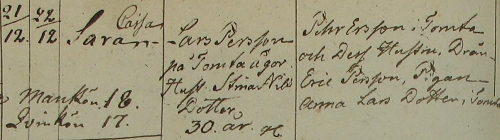 21/12. 22/12
Cajsa
Sara
Lars Persson
på Tomta ägor.
Hust. Stina Nils
Dotter.
30. år.
Pehr Ersson i Tomta
och Dess Hustru, Drän
Eric Persson, Pigan
Anna Lars Dotter, i Tomta
Mankön 18.
Qvinkön 17.